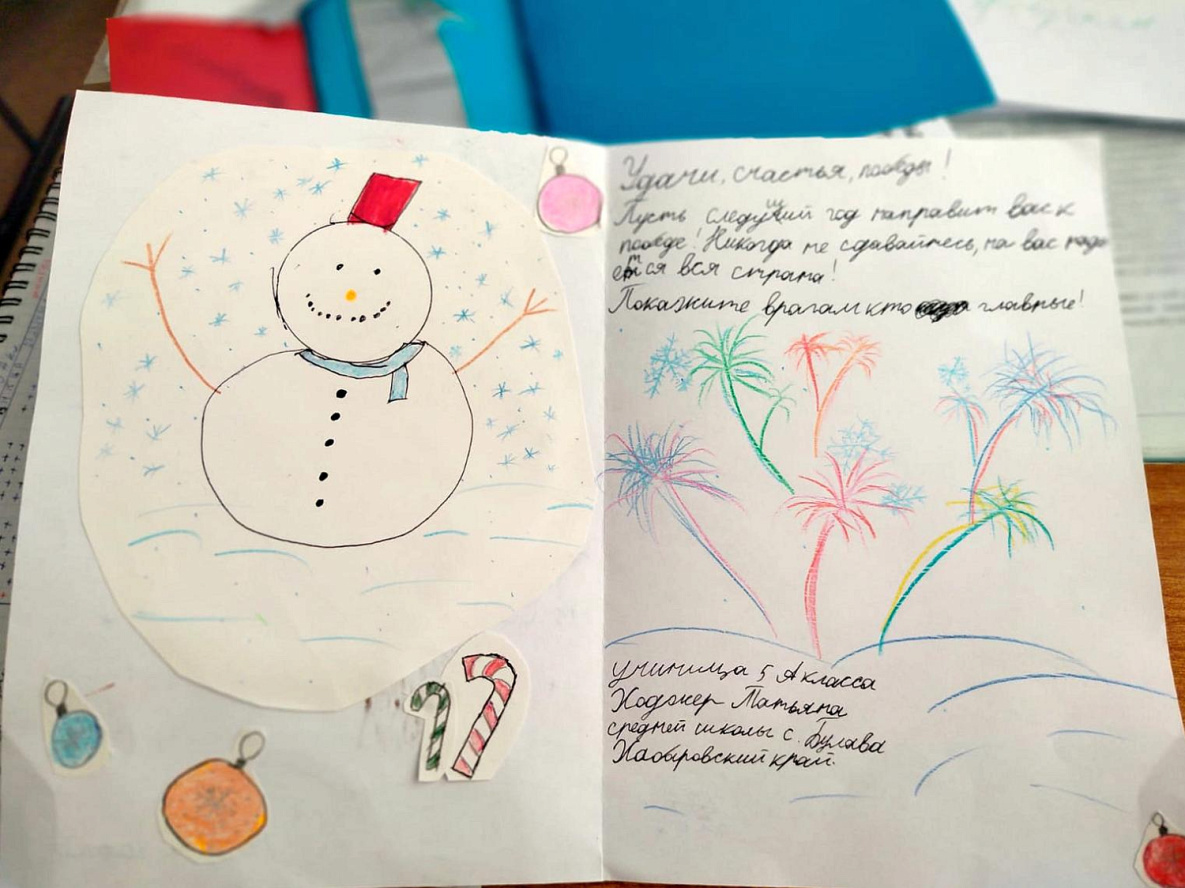 Удачи, счастья, победы!
Пусть следущий год направит вас к
победе! Никогда не сдавайтесь, на вас наде
ется вся страна!
Покажите врагам кто главные!
учиница 5 А класса
Ходжер Татьяна
средней школы с. Булава
Хабаровский край.